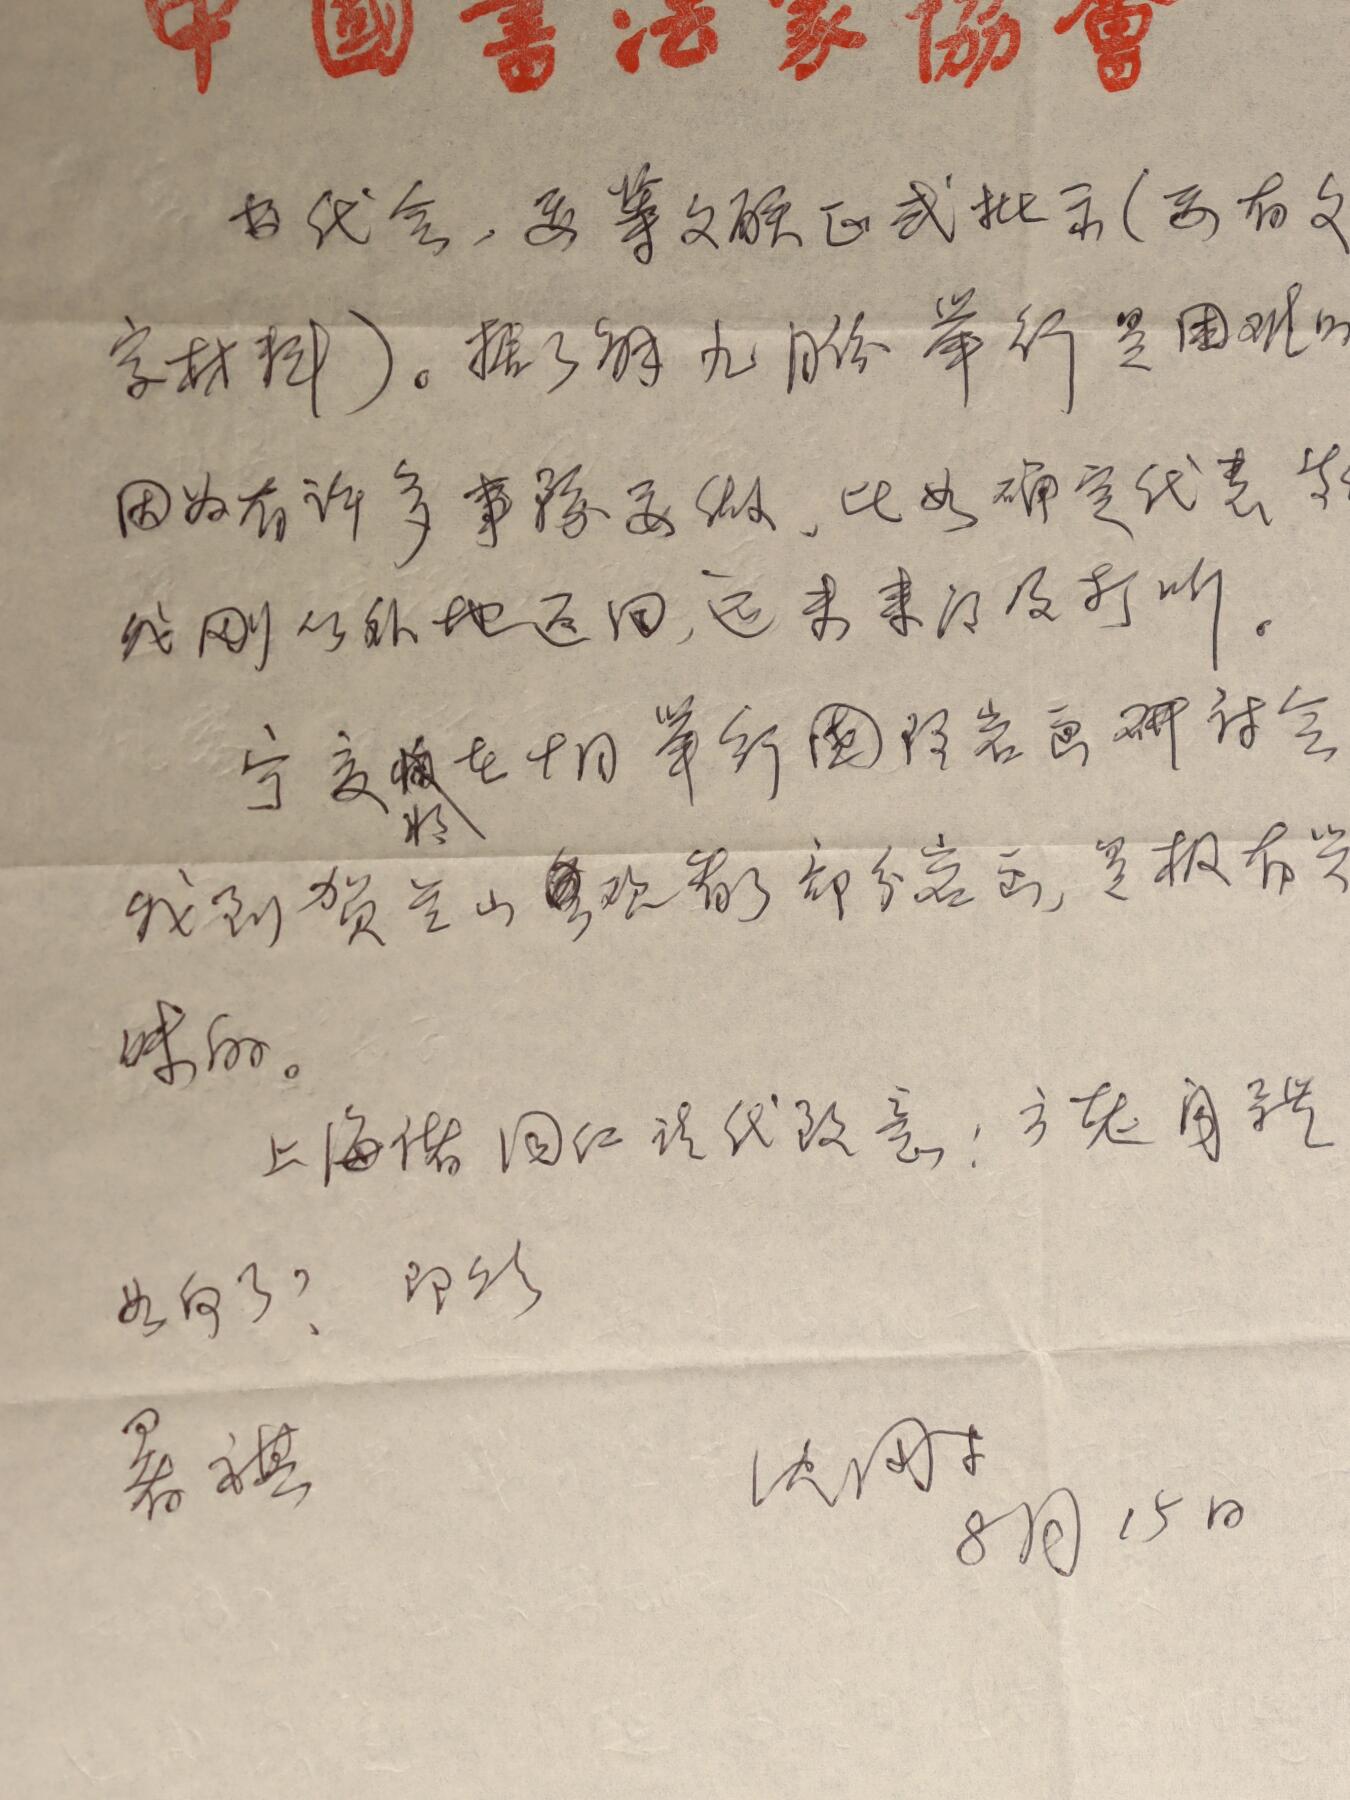 中國書法家協會
书代会，要等文联正式批示（要有文
字材料）。据了解九月份举行是困难的
因为有许多事务要做，比如确定代表等
我刚从外地返回，还未来得及打听。
宁夏将在十月举行国际岩画研讨会
我到贺兰山观看了部分岩画，是极有兴
味的。
上海诸同仁请代致意！方老身体
如何了？ 即颂
暑祺
沈
8月15日